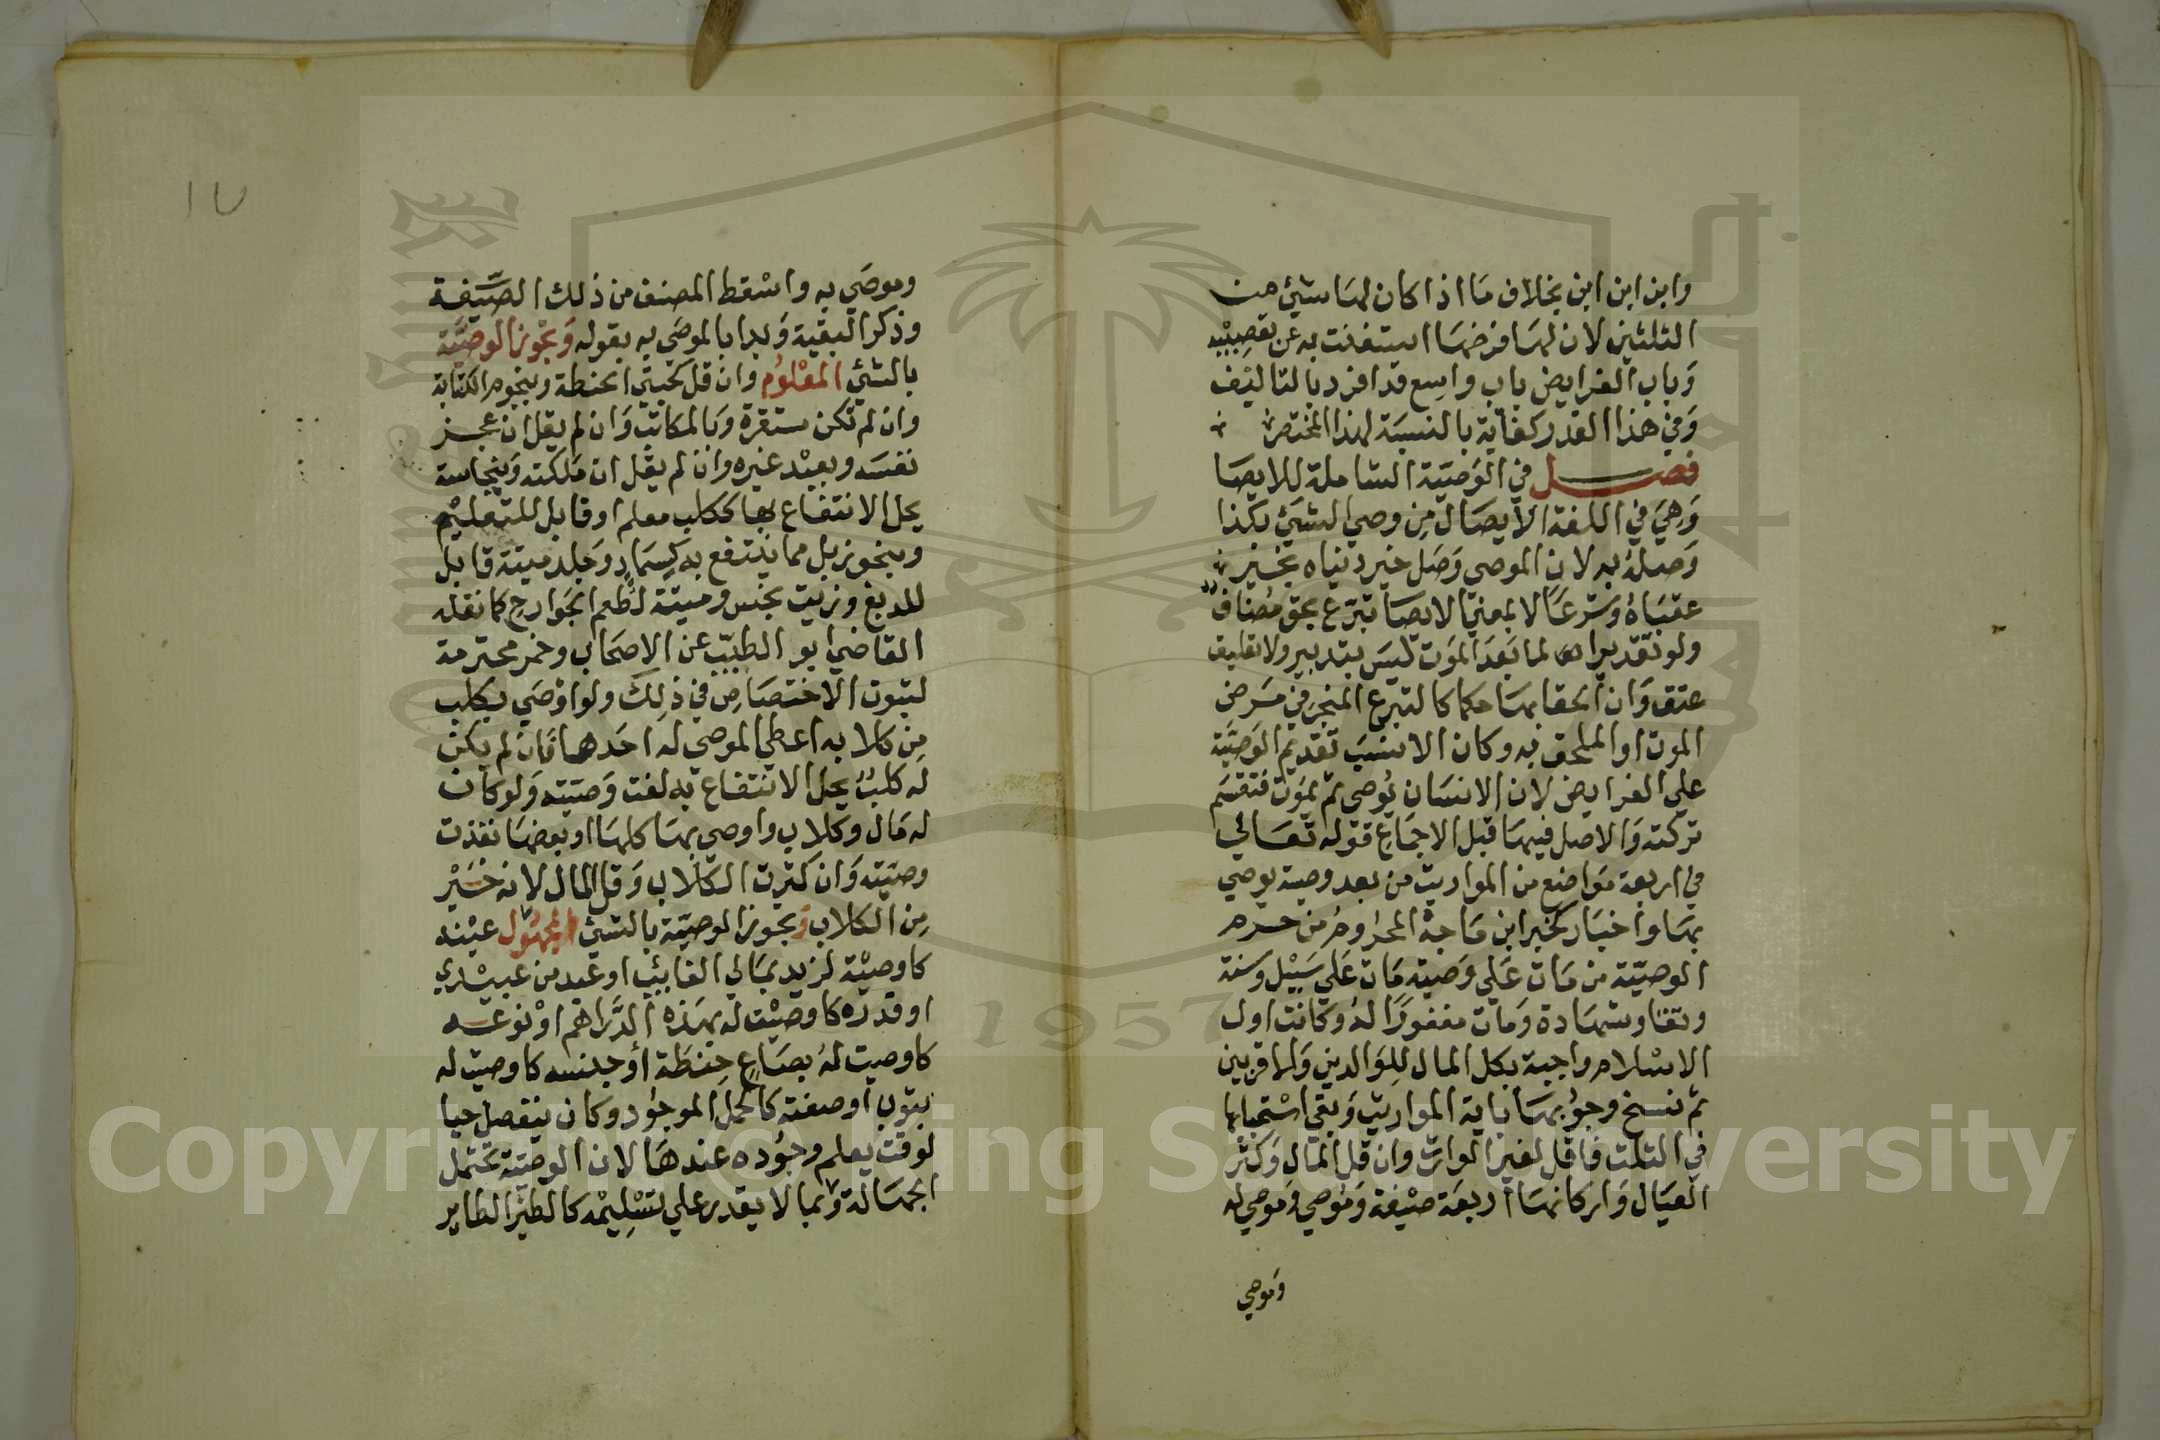 وابن ابن ابن بخلاف ما اذا كان لها شيئ من
الثلثين لان لها فرضها استغنت به عن تعصيبه
وباب الفرايض باب واسع قد افرد بالتاليف
وفي هذا القدر كفاية بالنسبة لهذا المختصر
فصل في الوصية الشاملة للايصا
وهي في اللغة الايصال من وصي الشيئ بكذا
وصله به لان الموصي وصل خير دنياه بخير
عقباه وشرعا لا بمعني الايصا تبرع بحق مضاف
ولو تقديرا لما بعد الموت ليس بتدبير ولا تعليق
عتق وان الحقا بها حكما كالتبرع المنجز في مرض
الموت او الملحق به وكان الانسب تقديم الوصية
علي الفرايض لان الانسان يوصي ثم يموت فتقسم
تركته والاصل فيها قبل الاجماع قوله تعالي
في اربعة مواضع من المواريث من بعد وصية يوصي
بها واخبار كخبر ابن ماجة المحروم من حرم
الوصية من مات علي وصية مات علي سبيل وسنة
وتقا وشهادة ومات مغفورا له وكانت اول
الاسلام واجبة بكل المال للوالدين والاقربين
ثم نسخ وجوبها باية المواريث وبقي استحبابها
في الثلث فاقل لغير الوارث وان قل المال وكثر
العيال واركانها اربعة صيغة وموصي وموصي له
وموصي
17
وموصي به واسقط المصنف من ذلك الصيغة
وذكر البقية وبدا بالموصي به بقوله وتجوز الوصية
بالشيئ المعلوم وان قل كحبتي الحنطة وبنجوم الكتابة
وان لم تكن مستقرة وبالمكاتب وان لم يقل ان عجز
نفسه وبعبد غيره وان لم يقل ان ملكته وبنجاسة
يحل الانتفاع بها ككلب معلم او قابل للتعليم
وبنحو زبل مما ينتفع به كسماد وجلد ميتة قابل
للدبغ وزيت نجس وميتة لطعم الجوارح كما نقله
القاضي ابو الطيب عن الاصحاب وخمر محترمة
لثبوت الاختصاص في ذلك ولو اوصي بكلب
من كلابه اعطي الموصي له احدها فان لم يكن
له كلب يحل الانتفاع به لغت وصيته ولو كان
له مال وكلاب واوصي بها كلها او بعضها نفذت
وصيته وان كثرت الكلاب وقل المال لانه خير
من الكلاب وتجوز الوصية بالشيئ المجهول عينه
كاوصية لزيد بمالي الغايب او عبد من عبيدي
او قدره كاوصيت له بهذه الدراهم او نوعه
كاوصيت له بصاع حنطة او جنسه كاوصيت له
بثوب او صفته كالحمل الموجود وكان ينفصل حيا
لوقت يعلم وجوده عندها لان الوصية تحتمل
الجهالة وبما لا يقدر علي تسليمه كالطير الطاير
Copyright © King Saud University
1957